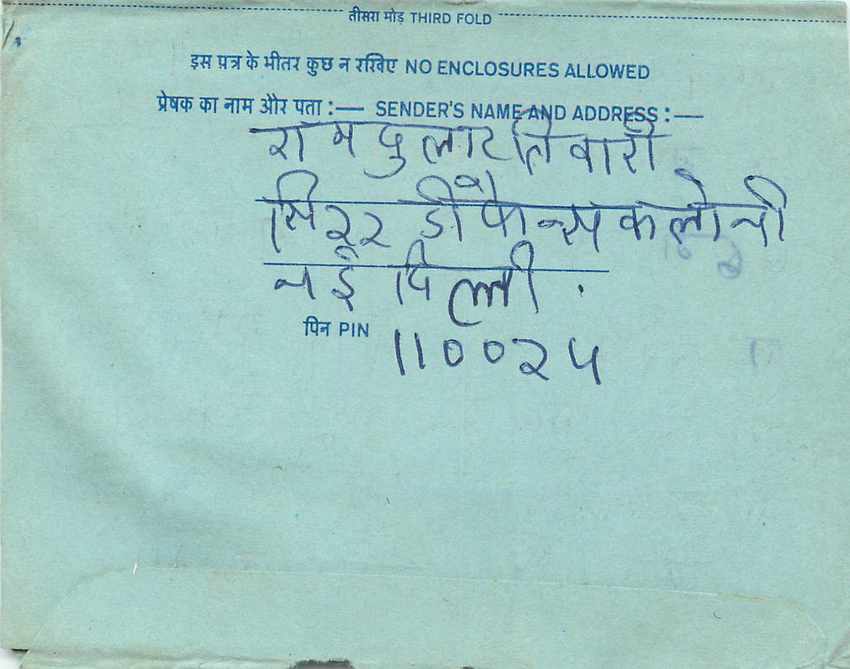 तीसरा मोड़ THIRD FOLD
इस पत्र के भीतर कुछ न रखिए NO ENCLOSURES ALLOWED
प्रेषक का नाम और पता :— SENDER'S NAME AND ADDRESS :—
राम दुलार तिवारी
सि २२ डीफेन्स कलोनी
नई दिल्ली .
पिन PIN
११००२५